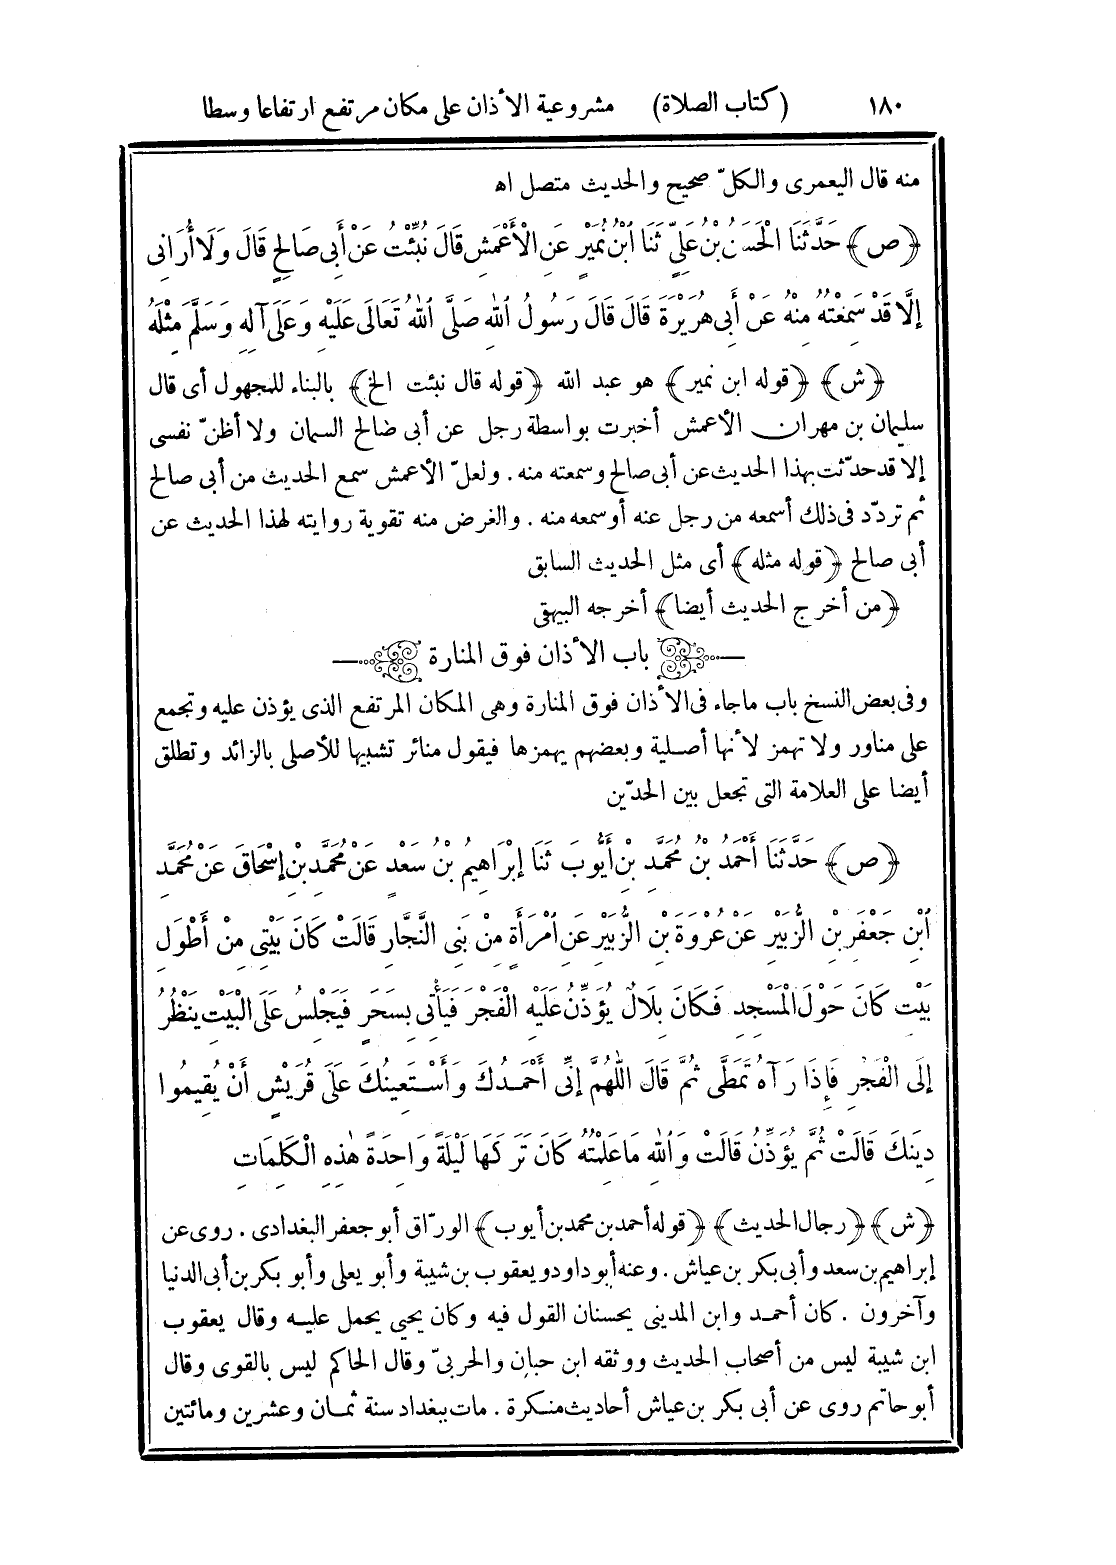 ١٨٠ (كتاب الصلاة) مشروعية الأذان على مكان مرتفع ارتفاعا وسطا
منه قال اليعمرى والكلّ صحيح والحديث متصل اه
﴿ص﴾ حَدَّثَنَا الْحَسَنُ بْنُ عَلِيٍّ ثَنَا ابْنُ نُمَيْرٍ عَنِ الْأَعْمَشِ قَالَ نُبِّئْتُ عَنْ أَبِى صَالِحٍ قَالَ وَلَا أُرَانِى
إِلَّا قَدْ سَمِعْتُهُ مِنْهُ عَنْ أَبِى هُرَيْرَةَ قَالَ قَالَ رَسُولُ اللهِ صَلَّى اللهُ تَعَالَى عَلَيْهِ وَعَلَى آلِهِ وَسَلَّمَ مِثْلَهُ
﴿ش﴾ ﴿قوله ابن نمير﴾ هو عبد الله ﴿قوله قال نبئت الخ﴾ بالبناء للمجهول أى قال
سليمان بن مهران الأعمش أخبرت بواسطة رجل عن أبى صالح السمان ولا أظنّ نفسى
إلا قد حدّثت بهذا الحديث عن أبى صالح وسمعته منه . ولعلّ الأعمش سمع الحديث من أبى صالح
ثم تردّد فى ذلك أسمعه من رجل عنه أو سمعه منه . والغرض منه تقوية روايته لهذا الحديث عن
أبى صالح ﴿قوله مثله﴾ أى مثل الحديث السابق
﴿من أخرج الحديث أيضا﴾ أخرجه البيهقى
باب الأذان فوق المنارة
وفى بعض النسخ باب ماجاء فى الأذان فوق المنارة وهى المكان المرتفع الذى يؤذن عليه وتجمع
على مناور ولا تهمز لأنها أصلية وبعضهم يهمزها فيقول منائر تشبيها للأصلى بالزائد وتطلق
أيضا على العلامة التى تجعل بين الحدّين
﴿ص﴾ حَدَّثَنَا أَحْمَدُ بْنُ مُحَمَّدِ بْنِ أَيُّوبَ ثَنَا إِبْرَاهِيمُ بْنُ سَعْدٍ عَنْ مُحَمَّدِ بْنِ إِسْحَاقَ عَنْ مُحَمَّدِ
ابْنِ جَعْفَرِ بْنِ الزُّبَيْرِ عَنْ عُرْوَةَ بْنِ الزُّبَيْرِ عَنِ امْرَأَةٍ مِنْ بَنِى النَّجَّارِ قَالَتْ كَانَ بَيْتِى مِنْ أَطْوَلِ
بَيْتٍ كَانَ حَوْلَ الْمَسْجِدِ فَكَانَ بِلَالٌ يُؤَذِّنُ عَلَيْهِ الْفَجْرَ فَيَأْتِى بِسَحَرٍ فَيَجْلِسُ عَلَى الْبَيْتِ يَنْظُرُ
إِلَى الْفَجْرِ فَإِذَا رَآهُ تَمَطَّى ثُمَّ قَالَ اللّٰهُمَّ إِنِّى أَحْمَدُكَ وَأَسْتَعِينُكَ عَلَى قُرَيْشٍ أَنْ يُقِيمُوا
دِينَكَ قَالَتْ ثُمَّ يُؤَذِّنُ قَالَتْ وَاللهِ مَا عَلِمْتُهُ كَانَ تَرَكَهَا لَيْلَةً وَاحِدَةً هٰذِهِ الْكَلِمَاتِ
﴿ش﴾ ﴿رجال الحديث﴾ ﴿قوله أحمد بن محمد بن أيوب﴾ الورّاق أبو جعفر البغدادى . روى عن
إبراهيم بن سعد وأبى بكر بن عياش . وعنه أبو داود ويعقوب بن شيبة وأبو يعلى وأبو بكر بن أبى الدنيا
وآخرون . كان أحمد وابن المدينى يحسنان القول فيه وكان يحيى يحمل عليه وقال يعقوب
ابن شيبة ليس من أصحاب الحديث ووثقه ابن حبان والحربىّ وقال الحاكم ليس بالقوى وقال
أبو حاتم روى عن أبى بكر بن عياش أحاديث منكرة . مات ببغداد سنة ثمان وعشرين ومائتين